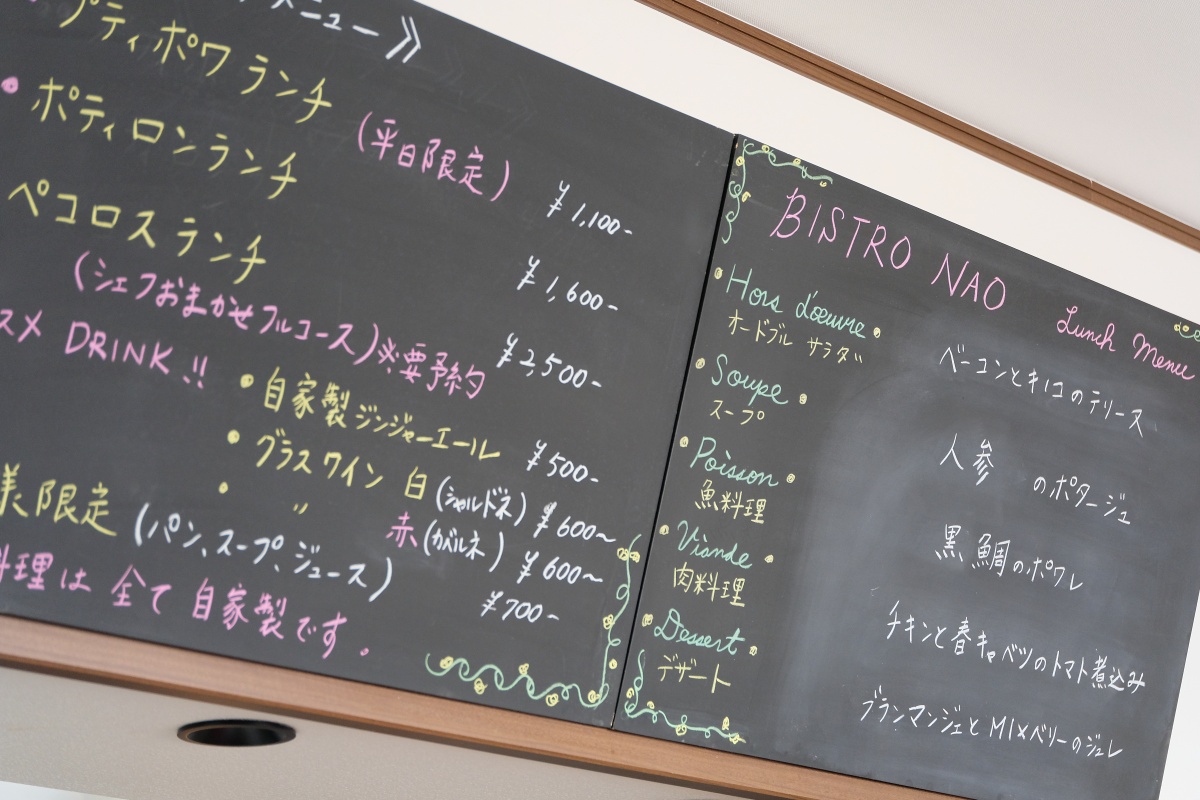 メニュー》
プティポワランチ
(平日限定) ¥1,100-
ポティロンランチ ¥1,600-
ペコロスランチ ¥2,500-
(シェフおまかせフルコース)※要予約
スメ DRINK !!
・自家製ジンジャーエール ¥500-
・グラスワイン 白(シャルドネ) ¥600~
・ 〃 赤(カベルネ) ¥600~
様限定 (パン、スープ、ジュース) ¥700-
料理は全て自家製です。
BISTRO NAO
Lunch Menu
Hors d'œuvre
オードブル サラダ
ベーコンとキノコのテリーヌ
Soupe
スープ
人参 のポタージュ
Poisson
魚料理
黒鯛のポワレ
Viande
肉料理
チキンと春キャベツのトマト煮込み
Dessert
デザート
ブランマンジェとMIXベリーのジュレ